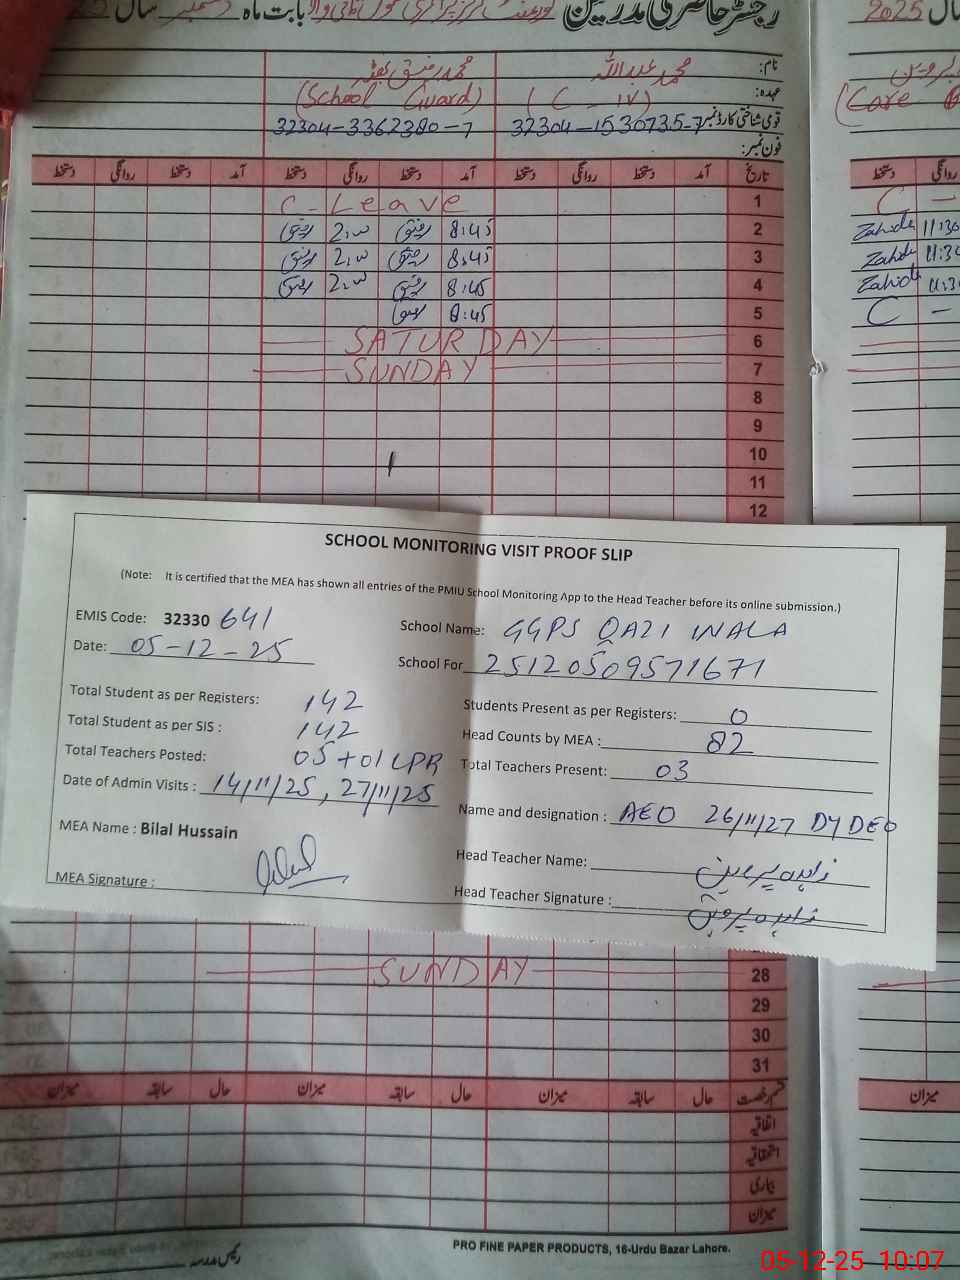 رجسٹر حاضری مدرسین
بابت ماہ دسمبر سال
سال 2025
نام: محمد عبداللہ محمد رفیق بھٹہ
عہدہ: (C-IV) (School Guard) (Care
قومی شناختی کارڈ نمبر 32304-1530735-7 32304-3362380-7
فون نمبر:
تاریخ آمد دستخط روانگی دستخط آمد دستخط روانگی دستخط آمد دستخط روانگی دستخط
دستخط روانگی
1 C-Leave C-
2 8:45 رفیق رفیق Zahida 11:30
3 8:45 رفیق رفیق Zahida
4 8:45 رفیق رفیق Zahida
5 8:45 رفیق C-
6 SATURDAY
7 SUNDAY
8
9
10
11
12
SCHOOL MONITORING VISIT PROOF SLIP
(Note: It is certified that the MEA has shown all entries of the PMIU School Monitoring App to the Head Teacher before its online submission.)
EMIS Code: 32330 641 School Name: GGPS QAZI WALA
Date: 05-12-25 School For 25120509571671
Total Student as per Registers: 142 Students Present as per Registers: 0
Total Student as per SIS : 142 Head Counts by MEA : 82
Total Teachers Posted: 05+01 LPR Total Teachers Present: 03
Date of Admin Visits : 14/11/25, 27/11/25 Name and designation : AEO 26/11/27 DY DEO
MEA Name : Bilal Hussain Head Teacher Name: زاہدہ پروین
MEA Signature : Head Teacher Signature : زاہدہ پروین
28 SUNDAY
29
30
31
قسم رخصت حال سابقہ میزان حال سابقہ میزان حال سابقہ میزان
میزان
اتفاقیہ
استحقاقیہ
بیماری
میزان
رئیس مدرسہ
PRO FINE PAPER PRODUCTS, 16-Urdu Bazar Lahore.
05-12-25 10:07